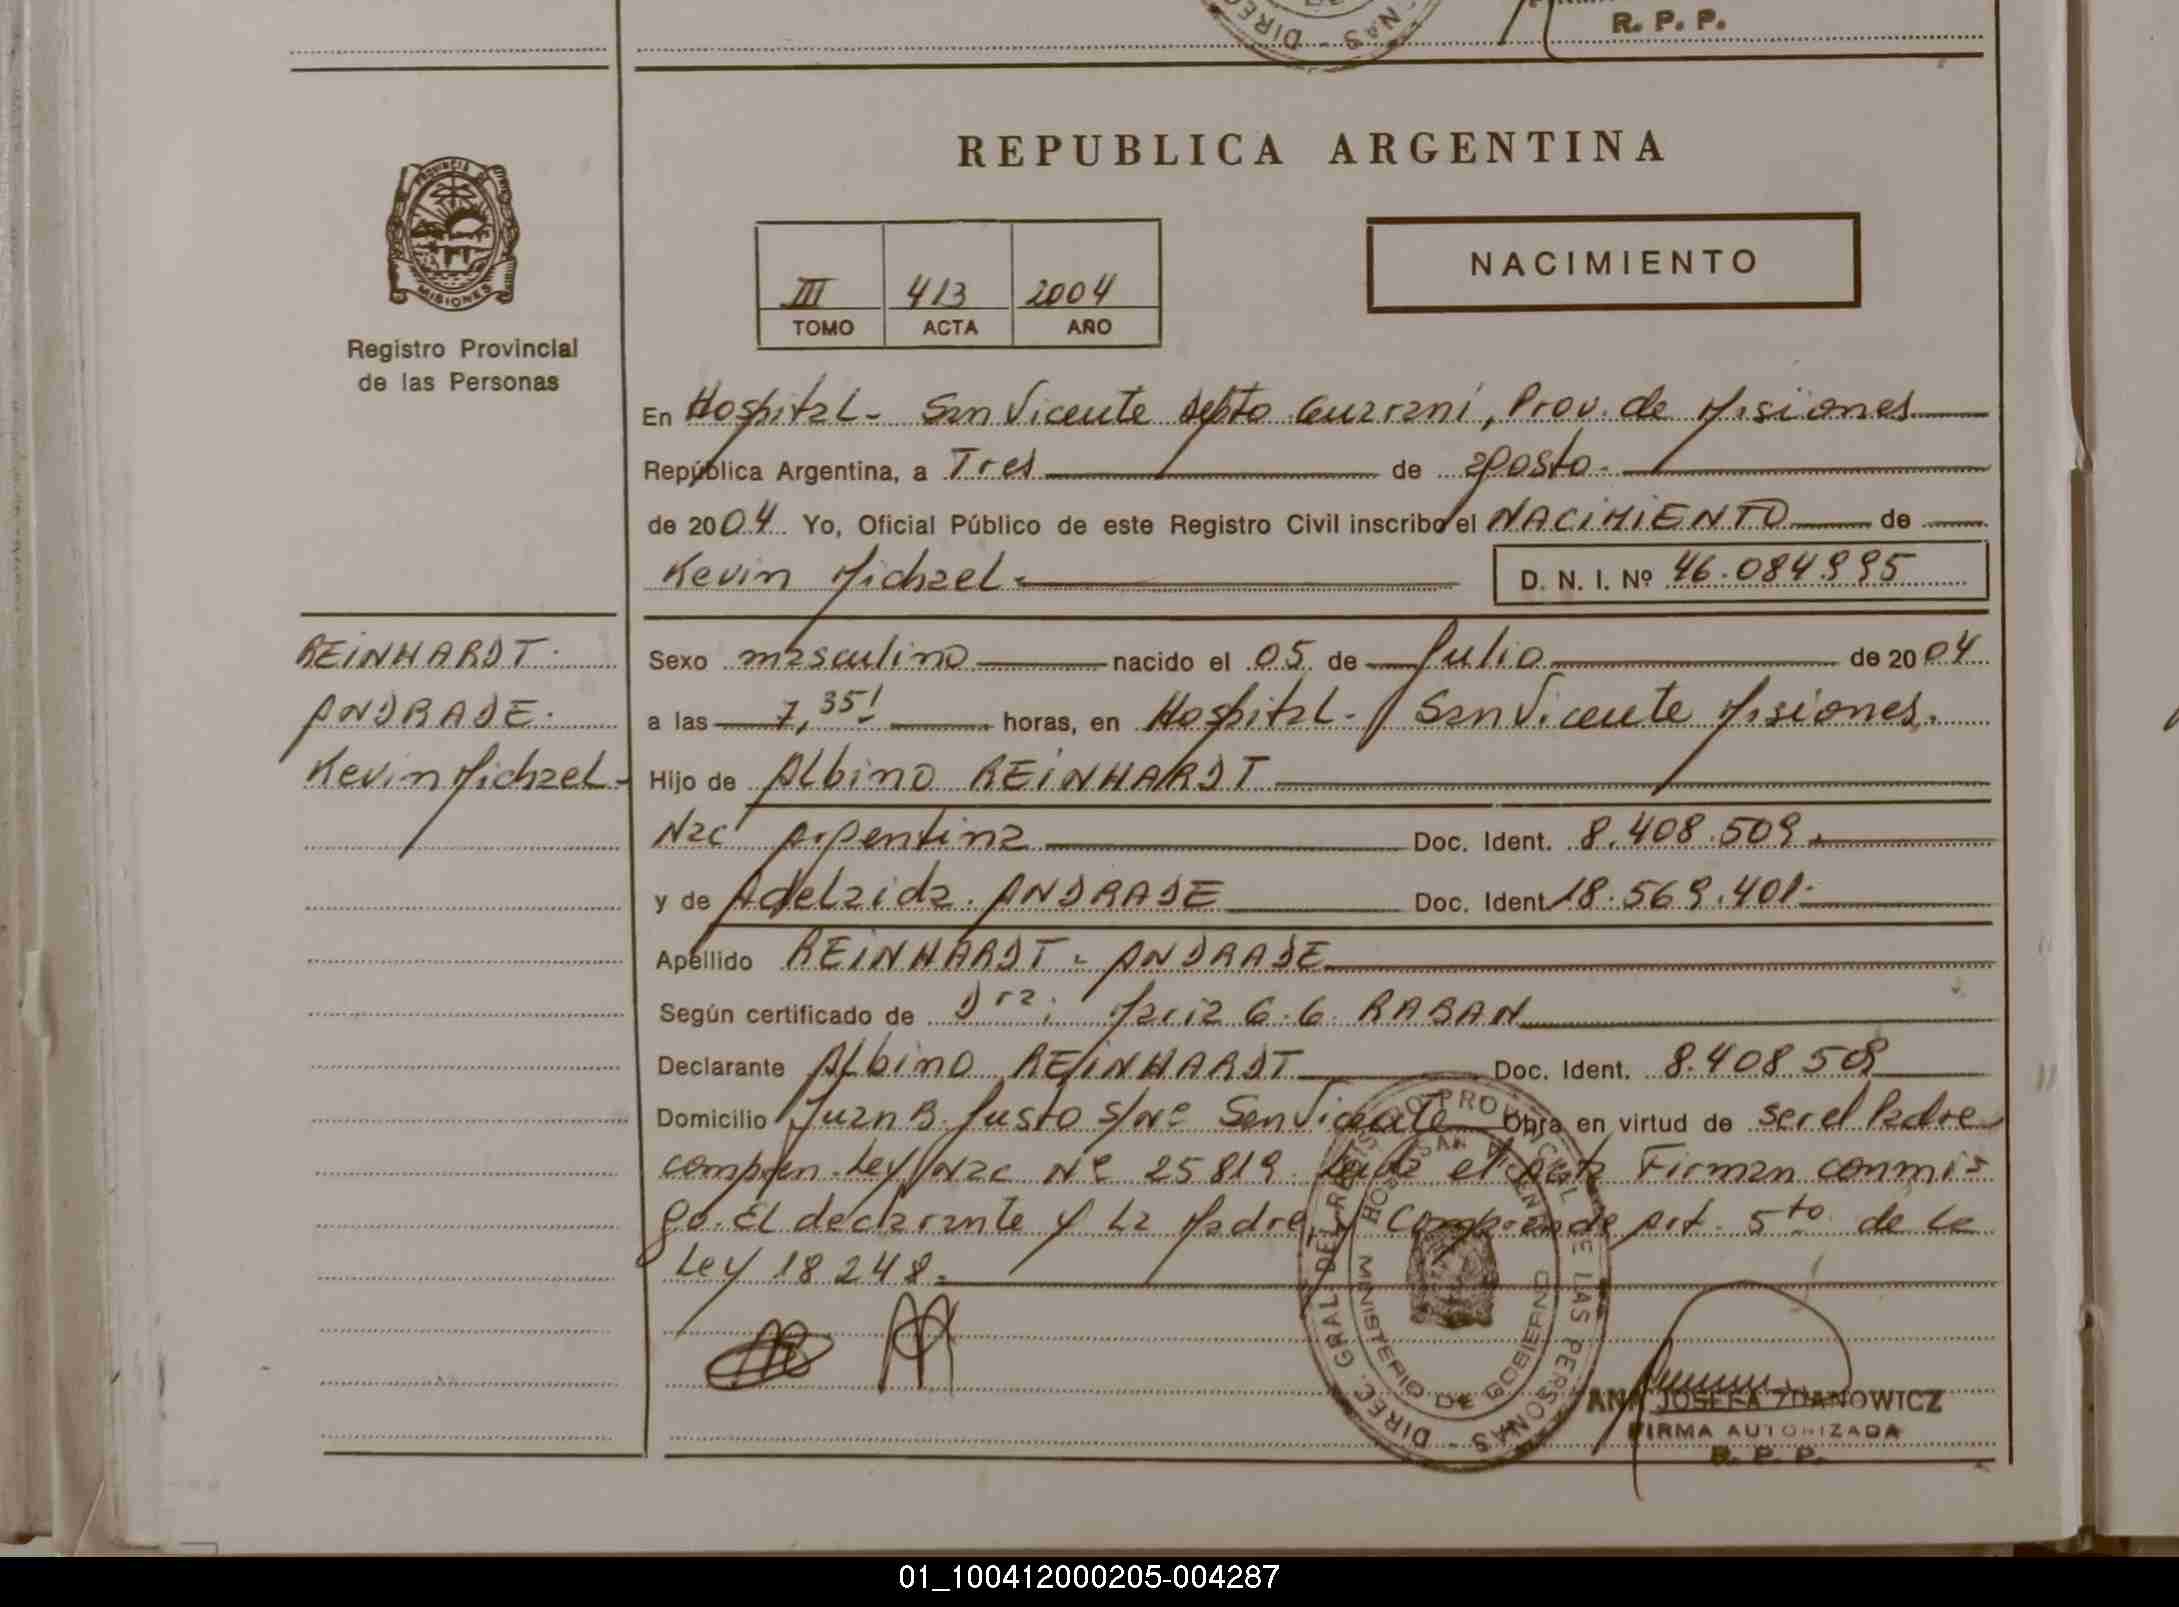 R. P. P.
REPUBLICA ARGENTINA
NACIMIENTO
III 413 2004
TOMO ACTA AÑO
PROVINCIA DE MISIONES
Registro Provincial
de las Personas
En Hospital - San Vicente Dpto Guarani, Prov. de Misiones
República Argentina, a Tres de agosto.
de 2004 Yo, Oficial Público de este Registro Civil inscribo el NACIMIENTO de
Kevin Michael.
D. N. I. Nº 46.084.995
REINHARDT.
ANDRADE.
Kevin Michael -
Sexo masculino nacido el 05 de Julio de 2004
a las 7,35' horas, en Hospital - San Vicente Misiones.
Hijo de Albino REINHARDT
Nac Argentina Doc. Ident. 8.408.509.
y de Adelaida. ANDRADE Doc. Ident. 18.569.401.
Apellido REINHARDT - ANDRADE
Según certificado de Dra: Maria G. G. RABAN
Declarante Albino REINHARDT Doc. Ident. 8.408 509
Domicilio Juan B. Justo s/Nº San Vicente Obra en virtud de ser el Padre
compren. Ley Nac Nº 25819 el acta Firman conmi=
go. El declarante y La Madre, Comprende Art. 5to de la
Ley 18 248.
DIREC. GRAL. DEL REGISTRO PROVINCIAL DE LAS PERSONAS -
HOSP. SAN VICENTE
MINISTERIO DE GOBIERNO
ANA JOSEFA ZDANOWICZ
FIRMA AUTORIZADA
R. P. P.
01_100412000205-004287